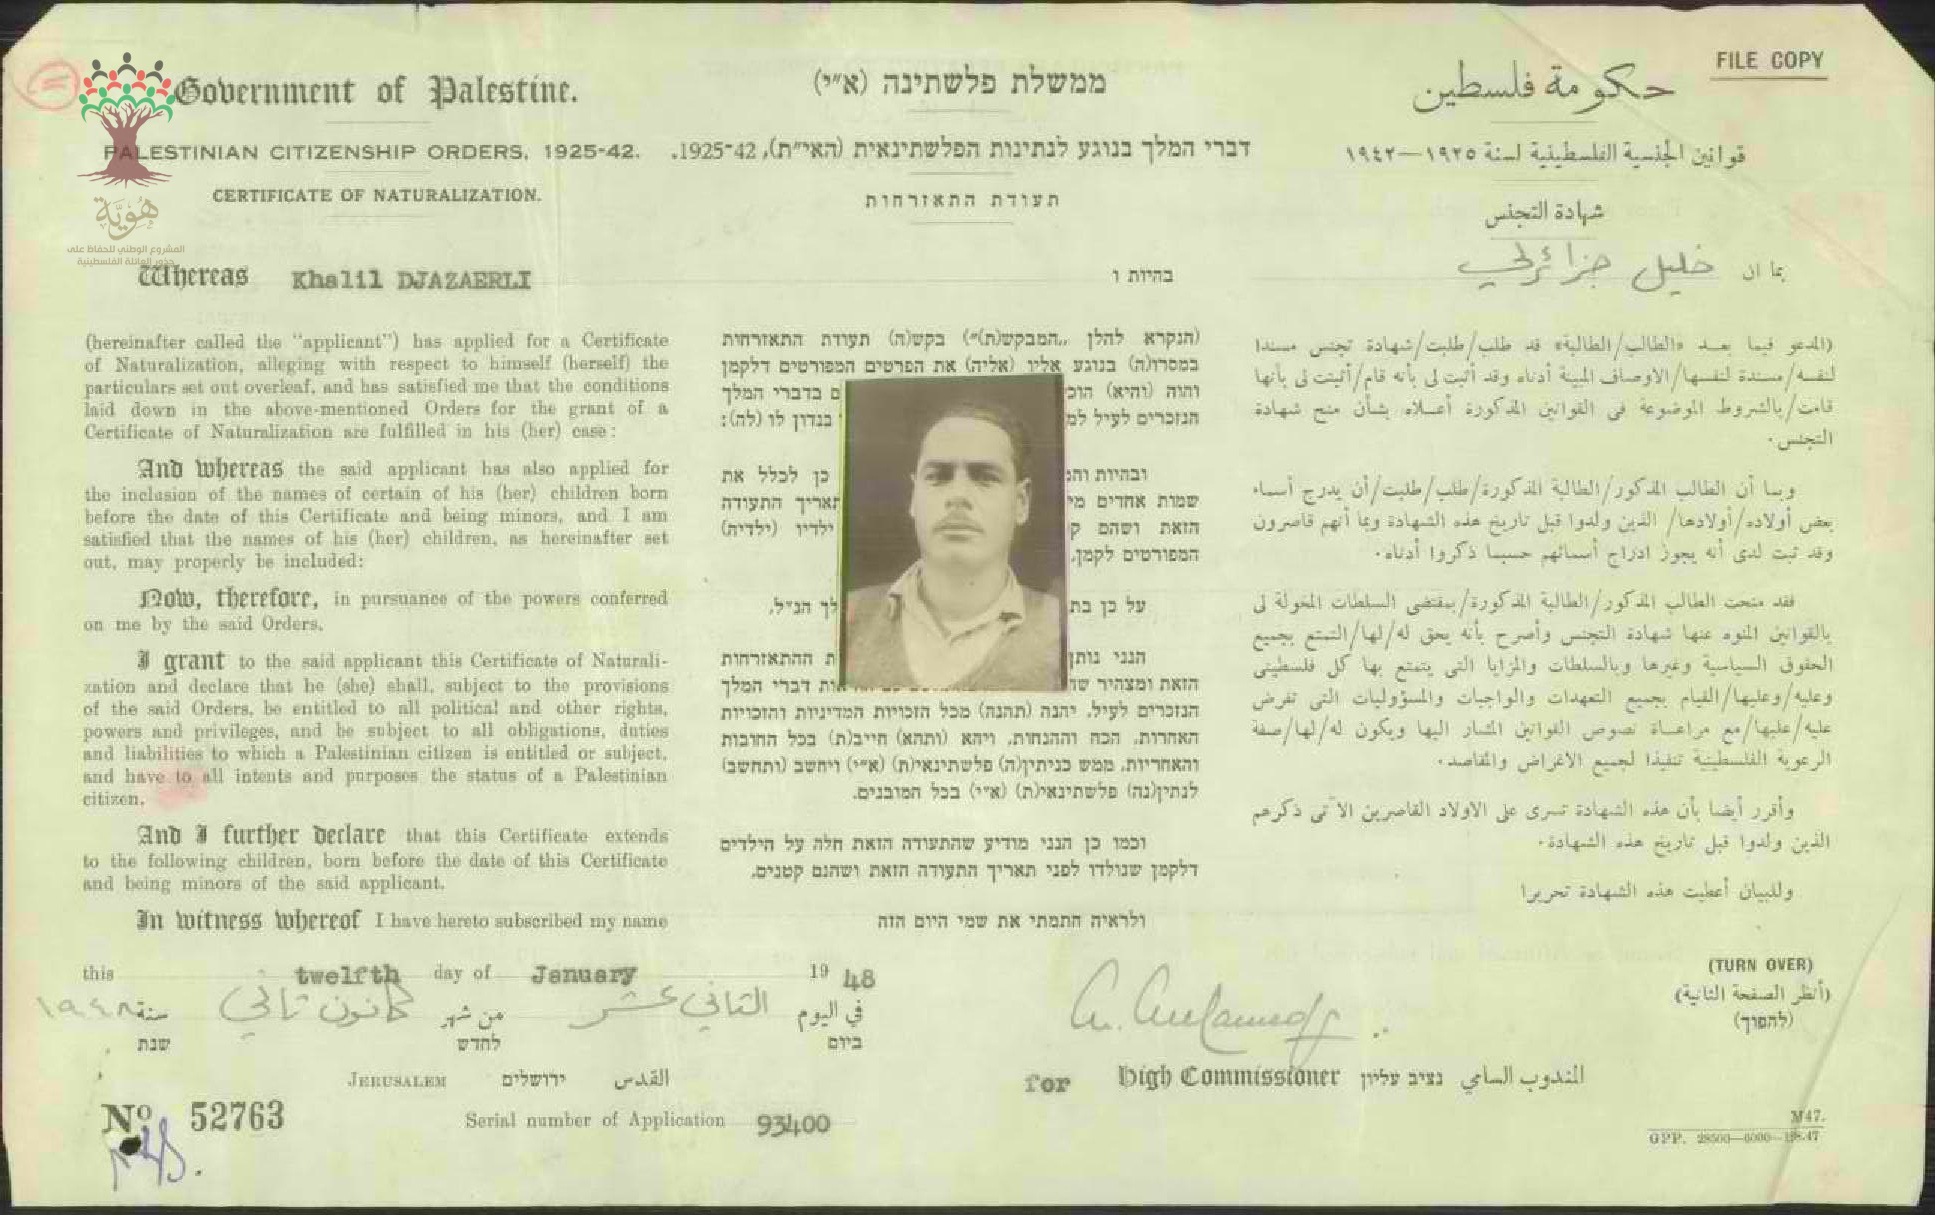 FILE COPY
Government of Palestine.
PALESTINIAN CITIZENSHIP ORDERS, 1925-42.
CERTIFICATE OF NATURALIZATION.
هُوِيَّة
المشروع الوطني للحفاظ على
جذور العائلة الفلسطينية
Whereas Khalil DJAZAERLI
(hereinafter called the "applicant") has applied for a Certificate
of Naturalization, alleging with respect to himself (herself) the
particulars set out overleaf, and has satisfied me that the conditions
laid down in the above-mentioned Orders for the grant of a
Certificate of Naturalization are fulfilled in his (her) case:
And whereas the said applicant has also applied for
the inclusion of the names of certain of his (her) children born
before the date of this Certificate and being minors, and I am
satisfied that the names of his (her) children, as hereinafter set
out, may properly be included:
Now, therefore, in pursuance of the powers conferred
on me by the said Orders,
I grant to the said applicant this Certificate of Naturali-
zation and declare that he (she) shall, subject to the provisions
of the said Orders, be entitled to all political and other rights,
powers and privileges, and be subject to all obligations, duties
and liabilities to which a Palestinian citizen is entitled or subject,
and have to all intents and purposes the status of a Palestinian
citizen.
And I further declare that this Certificate extends
to the following children, born before the date of this Certificate
and being minors of the said applicant.
In witness whereof I have hereto subscribed my name
ממשלת פלשתינה (א״י)
דברי המלך בנוגע לנתינות הפלשתינאית (הא״ית), 1925-42.
תעודת התאזרחות
בהיות ו
(הנקרא להלן „המבקש(ת)״) בקש(ה) תעודת התאזרחות
במסרו(ה) בנוגע אליו (אליה) את הפרטים המפורטים דלקמן
והוה (והיא) הוכ ם בדברי המלך
הנזכרים לעיל למ בנדון לו (לה):
ובהיות והמ כן לכלל את
שמות אחדים מי תאריך התעודה
הזאת ושהם ק ילדיו (ילדיה)
המפורטים לקמן,
על כן בת לך הנ״ל,
הנני נותן ת ההתאזרחות
הזאת ומצהיר שה דברי המלך
הנזכרים לעיל, יהנה (תהנה) מכל הזכויות המדיניות והזכויות
האחרות, הכח וההנחות, ויהא (ותהא) חייב(ת) בכל החובות
והאחריות, ממש כניתין(ה) פלשתינאי(ת) (א״י) ויחשב (ותחשב)
לנתין(נה) פלשתינאי(ת) (א״י) בכל המובנים.
וכמו כן הנני מודיע שהתעודה הזאת חלה על הילדים
דלקמן שנולדו לפני תאריך התעודה הזאת ושהנם קטנים.
ולראיה חתמתי את שמי היום הזה
حكومة فلسطين
قوانين الجنسية الفلسطينية لسنة ١٩٢٥—١٩٤٢
شهادة التجنس
بما ان خليل جزائرلي
(المدعو فيما بعد «الطالب/الطالبة» قد طلب/طلبت/شهادة تجنس مسندا
لنفسه/مسندة لنفسها/الاوصاف المبينة أدناه وقد أثبت لى بأنه قام/أثبتت لى بأنها
قامت/بالشروط الموضوعة فى القوانين المذكورة أعلاه بشأن منح شهادة
التجنس.
وبما أن الطالب المذكور/الطالبة المذكورة/طلب/طلبت/أن يدرج أسماء
بعض أولاده/أولادها/ الذين ولدوا قبل تاريخ هذه الشهادة وبما أنهم قاصرون
وقد ثبت لدى أنه يجوز ادراج أسمائهم حسبما ذكروا أدناه.
فقد منحت الطالب المذكور/الطالبة المذكورة/بمقتضى السلطات المخولة لى
بالقوانين المنوه عنها شهادة التجنس وأصرح بأنه يحق له/لها/التمتع بجميع
الحقوق السياسية وغيرها وبالسلطات والمزايا التى يتمتع بها كل فلسطينى
وعليه/وعليها/القيام بجميع التعهدات والواجبات والمسؤوليات التى تفرض
عليه/عليها/مع مراعاة نصوص القوانين المشار اليها ويكون له/لها/صفة
الرعوية الفلسطينية تنفيذا لجميع الاغراض والمقاصد.
وأقرر أيضا بأن هذه الشهادة تسرى على الاولاد القاصرين الآتى ذكرهم
الذين ولدوا قبل تاريخ هذه الشهادة.
وللبيان أعطيت هذه الشهادة تحريرا
this twelfth day of January 19 48
في اليوم الثاني عشر من شهر كانون ثاني سنة ١٩٤٨
ביום לחדש שנת
(TURN OVER)
(أنظر الصفحة الثانية)
(להפוך)
JERUSALEM ירושלים القدس
for High Commissioner נציב עליון المندوب السامي
No. 52763
Serial number of Application 93400
M47.
GPP. 28500—6000—